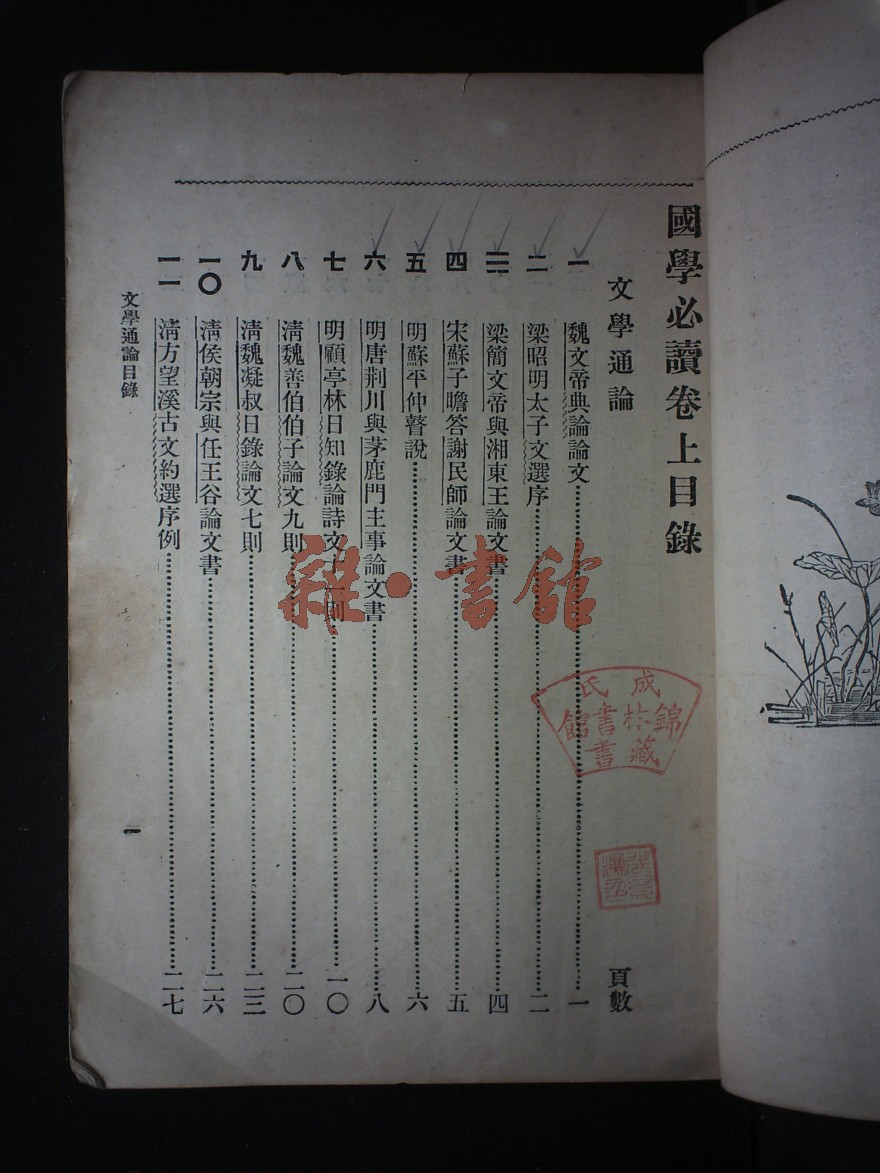 國學必讀卷上目錄
文學通論 頁數
一 魏文帝典論論文 一
二 梁昭明太子文選序 二
三 梁簡文帝與湘東王論文書 四
四 宋蘇子瞻答謝民師論文書 五
五 明蘇平仲瞽說 六
六 明唐荆川與茅鹿門主事論文書 八
七 明顧亭林日知錄論詩文十一則 一〇
八 清魏善伯伯子論文九則 二〇
九 清魏凝叔日錄論文七則 二三
一〇 清侯朝宗與任王谷論文書 二六
一一 清方望溪古文約選序例 二七
文學通論目錄
一
雜·書館
成氏
錦林書館
藏書